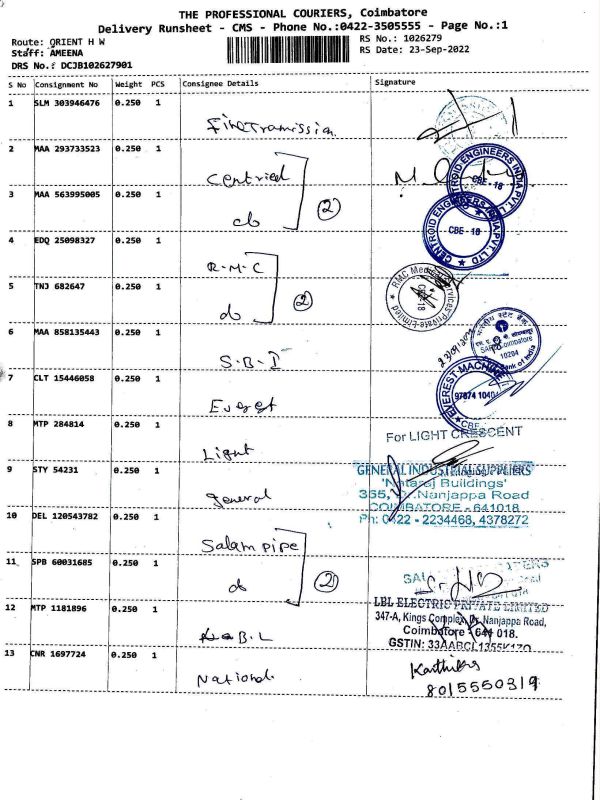 THE PROFESSIONAL COURIERS, Coimbatore
Delivery Runsheet - CMS - Phone No.:0422-3505555 - Page No.:1
Route: ORIENT H W
RS No.: 1026279
Staff: AMEENA
RS Date: 23-Sep-2022
DRS No.: DCJB102627901
S No Consignment No Weight PCS Consignee Details Signature
1 SLM 303946476 0.250 1
2 MAA 293733523 0.250 1 Centried
3 MAA 563995005 0.250 1 do (2)
4 EDQ 25098327 0.250 1 R.M.C
5 TNJ 682647 0.250 1 do (2)
6 MAA 858135443 0.250 1 S.B.I
7 CLT 15446058 0.250 1 Everest
8 MTP 284814 0.250 1 Light
9 STY 54231 0.250 1 General
10 DEL 120543782 0.250 1 Salam pipe
11 SPB 60031685 0.250 1 do (2)
12 MTP 1181896 0.250 1 L.B.L
13 CNR 1697724 0.250 1 National
CENTROID ENGINEERS INDIA PVT. LTD
CBE - 18
CENTROID ENGINEERS INDIA PVT. LTD
CBE - 18
RMC Medical Services Private Limited
23/09/2022
भारतीय स्टेट बैंक
10204
Bank of India
EVEREST MACHINE
CBE
For LIGHT CRESCENT
GENERAL INDUSTRIAL SUPPLIERS
'Nataraj Buildings'
355, Dr. Nanjappa Road
COIMBATORE - 641018
Ph: 0422 - 2234468, 4378272
LBL ELECTRIC PRIVATE LIMITED
347-A, Kings Complex, Dr. Nanjappa Road,
Coimbatore - 641 018.
GSTIN: 33AABCL1355K1ZO
Karthik
8015550319